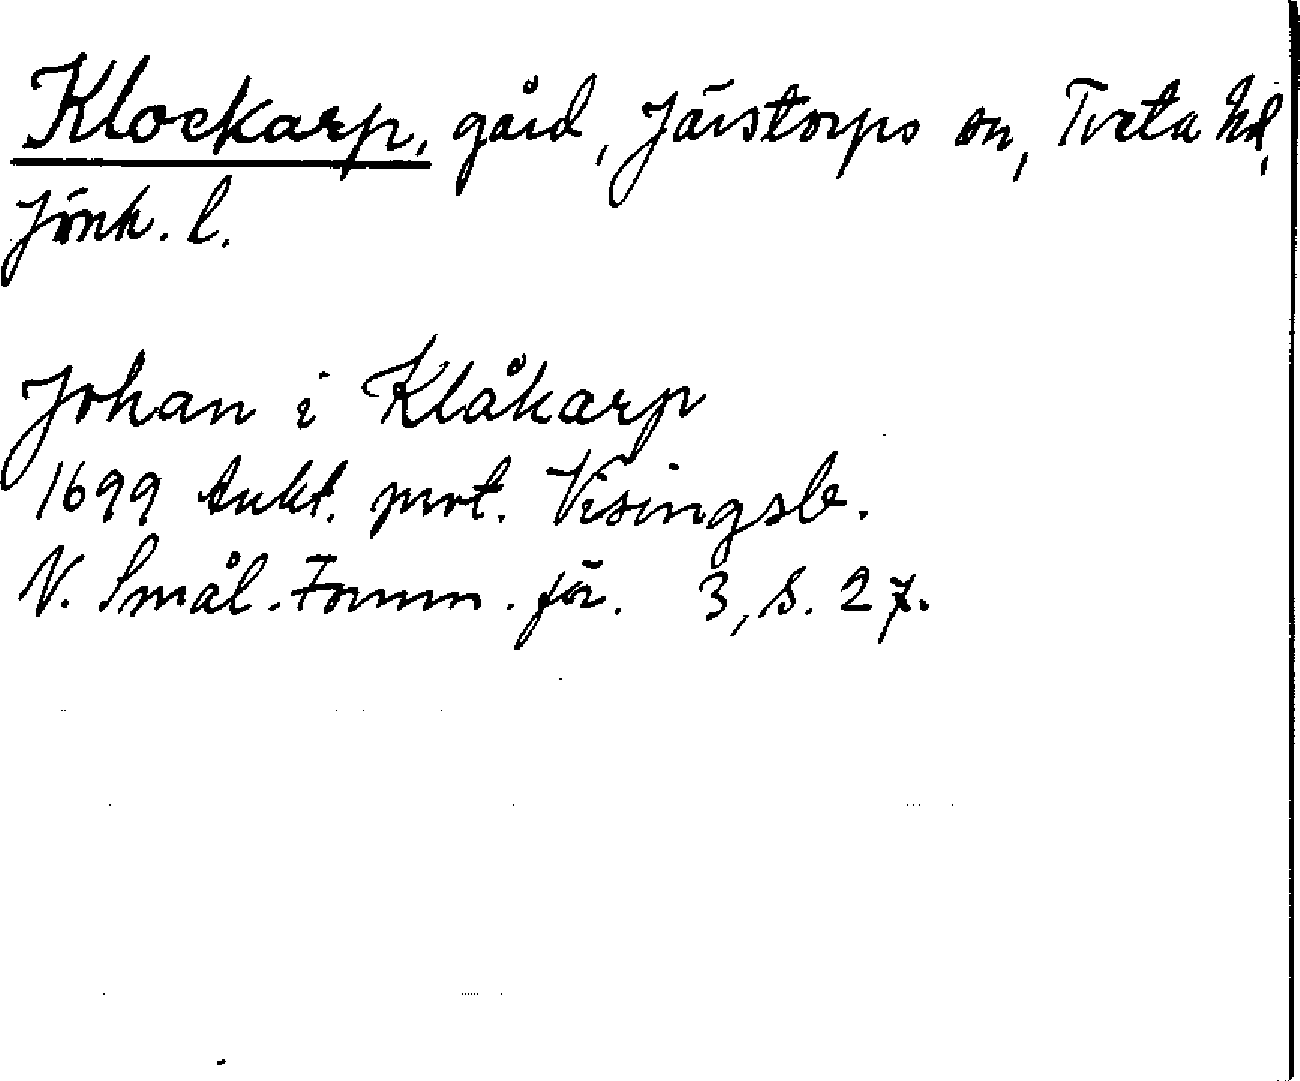 Klockarp, gård, Järstorps sn, Tveta hd,
Jönk. l.
Johan i Klåkarp
1699 tukt. prot. Visingsb.
N. Smål. Fornm. för. 3, s. 27.